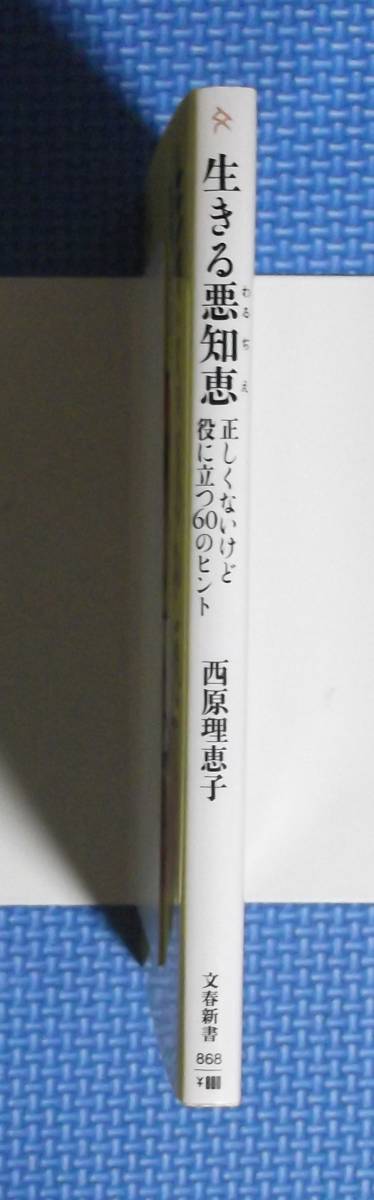 生きる悪知恵
わるぢえ
正しくないけど
役に立つ60のヒント
西原理恵子
文春新書
868